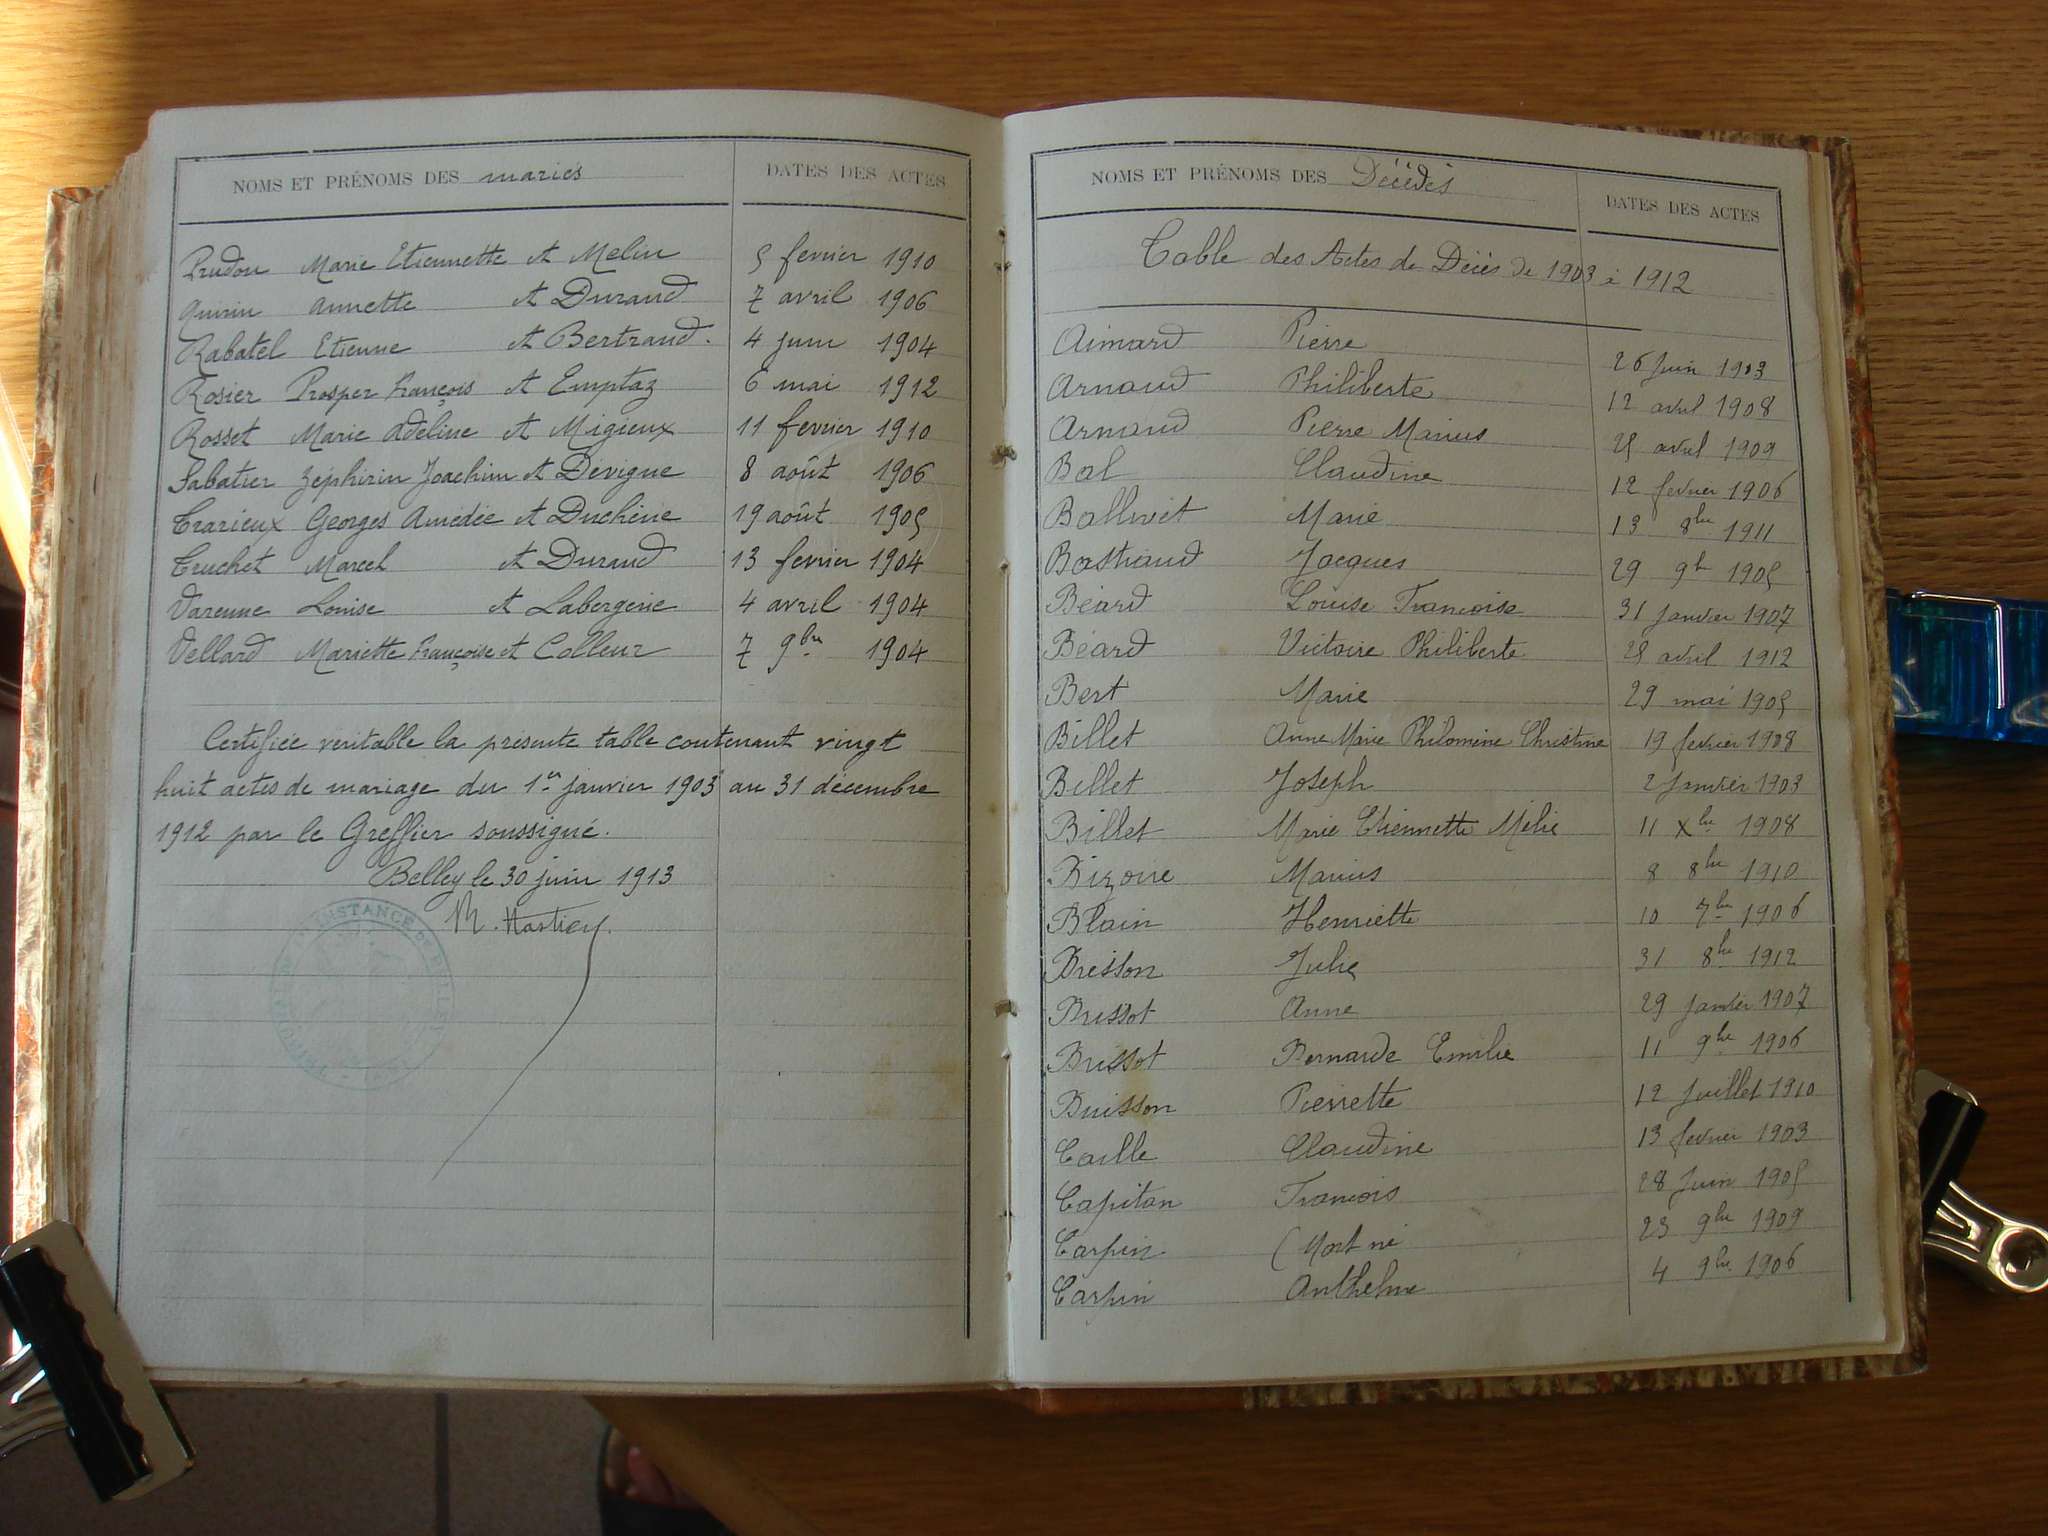 NOMS ET PRÉNOMS DES mariés DATES DES ACTES
Prudon Marie Etiennette et Melin 5 fevrier 1910
Quirin Annette et Durand 7 avril 1906
Rabatel Etienne et Bertrand. 4 juin 1904
Rosier Prosper François et Emptaz 6 mai 1912
Rosset Marie Adeline et Migieux 11 fevrier 1910
Sabatier Zéphirin Joachim et Dévigne 8 août 1906
Trarieux Georges Amédée et Duchêne 19 août 1905
Truchet Marcel et Durand 13 fevrier 1904
Varenne Louise et Labergerie 4 avril 1904
Vellard Mariette Françoise et Colleur 7 9bre 1904
Certifiée véritable la présente table contenant vingt
huit actes de mariage du 1er janvier 1903 au 31 décembre
1912 par le Greffier soussigné.
Belley le 30 juin 1913
INSTANCE
NOMS ET PRÉNOMS DES Décédés DATES DES ACTES
Table des Actes de Décès de 1903 à 1912
Aimard Pierre 26 Juin 1903
Arnaud Philiberte 12 avril 1908
Arnaud Pierre Marius 25 avril 1909
Bal Claudine 12 fevrier 1906
Ballivet Marie 13 8bre 1911
Bastraud Jacques 29 9b 1905
Béard Louise Françoise 31 Janvier 1907
Béard Victoire Philiberte 25 avril 1912
Bert Marie 29 mai 1905
Billet Anne Marie Philomène Christine 19 fevrier 1908
Billet Joseph 2 Janvier 1903
Billet Marie Etiennette Mélie 11 Xbre 1908
Bizoire Marius 8 8bre 1910
Blain Henriette 10 7bre 1906
Bresson Julie 31 8bre 1912
Brissot Anne 29 Janvier 1907
Brissot Bernarde Emilie 11 9bre 1906
Buisson Pierrette 12 Juillet 1910
Caille Claudine 13 fevrier 1903
Capitan François 28 Juin 1905
Carpin (Mort né 23 9bre 1909
Carpin Anthelme 4 9bre 1906